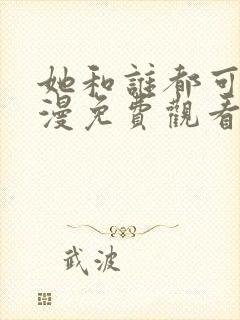 她和誰都可
漫免費觀看
武波